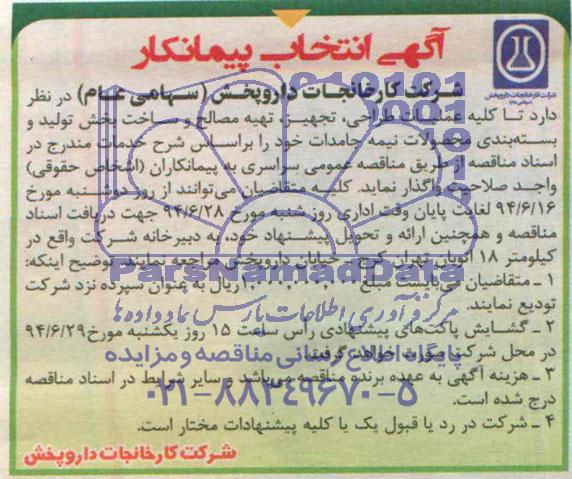 آگهی انتخاب پیمانکار
شرکت کارخانجات داروپخش
شرکت کارخانجات داروپخش (سهامی عام) در نظر
دارد تا کلیه عملیات طراحی، تجهیز، تهیه مصالح و ساخت بخش تولید و
بسته‌بندی محصولات نیمه جامدات خود را براساس شرح خدمات مندرج در
اسناد مناقصه از طریق مناقصه عمومی سراسری به پیمانکاران (اشخاص حقوقی)
واجد صلاحیت واگذار نماید. کلیه متقاضیان می‌توانند از روز دوشنبه مورخ
۹۴/۶/۱۶ لغایت پایان وقت اداری روز شنبه مورخ ۹۴/۶/۲۸ جهت دریافت اسناد
مناقصه و همچنین ارائه و تحویل پیشنهاد خود، به دبیرخانه شرکت واقع در
کیلومتر ۱۸ اتوبان تهران کرج، خیابان داروپخش مراجعه نمایند. توضیح اینکه:
۱ ـ متقاضیان می‌بایست مبلغ ریال به عنوان سپرده نزد شرکت
تودیع نمایند.
۲ ـ گشایش پاکت‌های پیشنهادی رأس ساعت ۱۵ روز یکشنبه مورخ ۹۴/۶/۲۹
در محل شرکت صورت خواهد گرفت.
۳ ـ هزینه آگهی به عهده برنده مناقصه می‌باشد و سایر شرایط در اسناد مناقصه
درج شده است.
۴ ـ شرکت در رد یا قبول یک یا کلیه پیشنهادات مختار است.
شرکت کارخانجات داروپخش
ParsNamadData
مرکز فرآوری اطلاعات پارس نماد داده‌ها
پایگاه اطلاع رسانی مناقصه و مزایده
۰۲۱-۸۸۳۴۹۶۷۰-۵